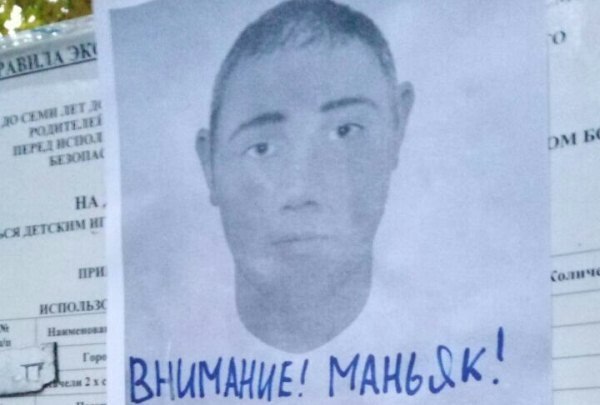 РАВИЛА ЭКС
ГО
ДО СЕМИ ЛЕТ Д
РОДИТЕЛЕ
ПЕРЕД ИСПОЛ
БЕЗОПАС
ОМ БО
НА
СЯ ДЕТСКИМ ИГ
ПРИ
Количе
ИСПОЛЬЗО
№
п/п
Наименова
Горо
ачели 2 х с
ВНИМАНИЕ! МАНЬЯК!